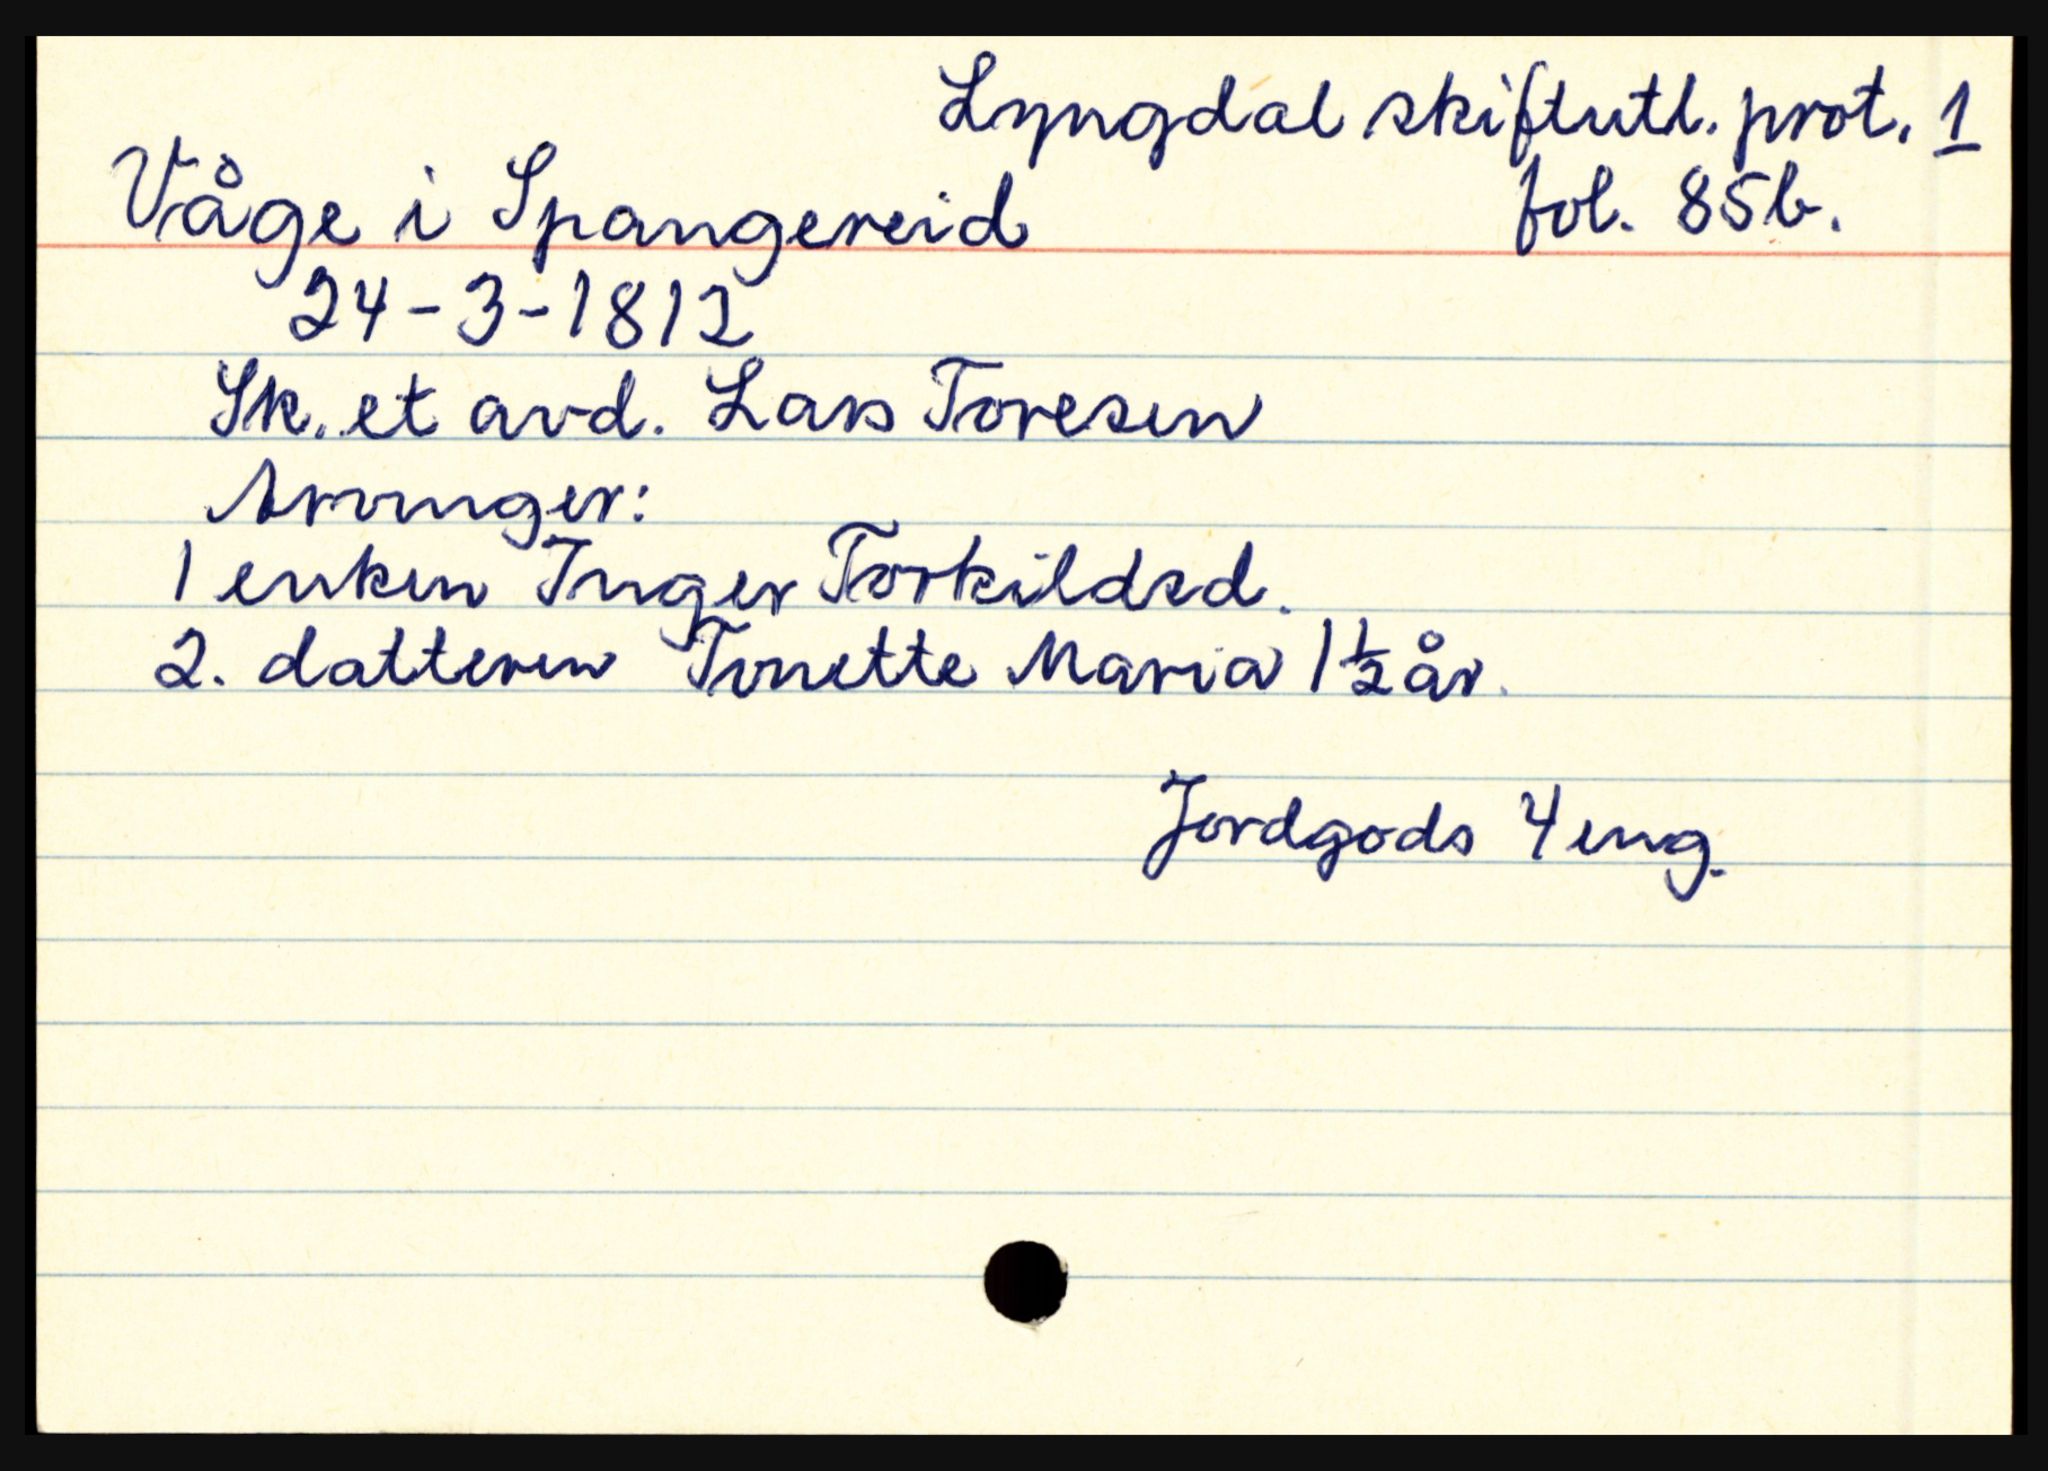 Lyngdal skiftutl. prot. 1
Våge i Spangereid fol. 85b.
24-3-1812
Sk. et avd. Lars Toresen
Arvinger:
1 enken Inger Torkildsd.
2. datteren Tonette Maria 1 1/2 år.
Jordgods 4 eng.